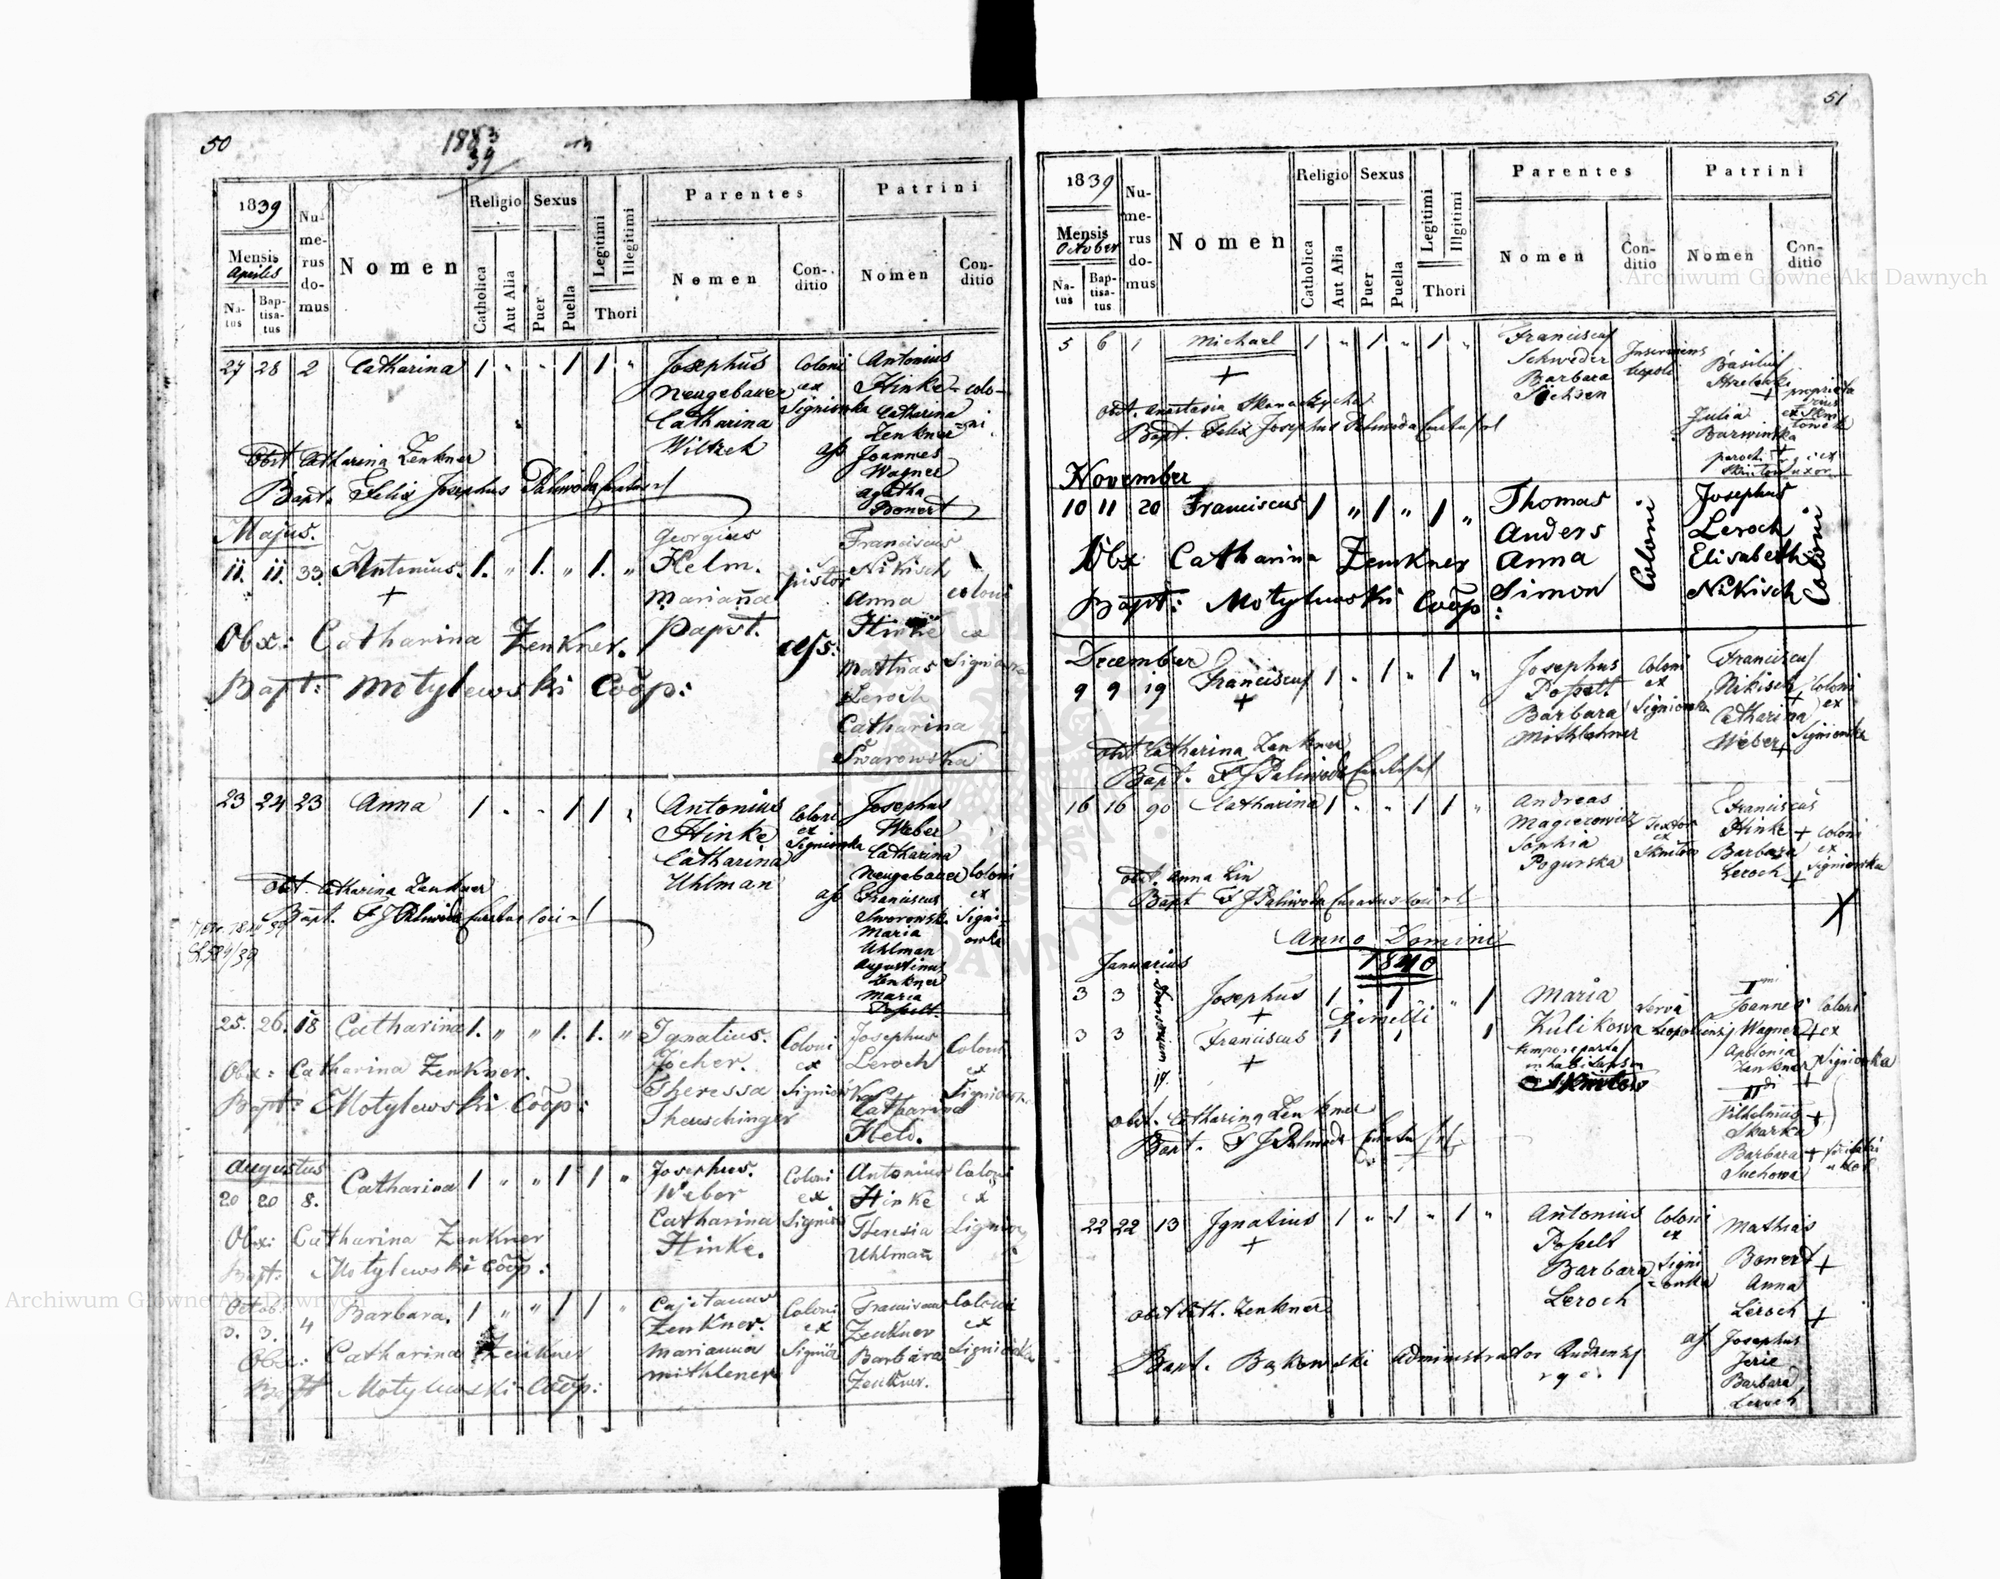 50
1883
39
1839
Mensis
Aprilis
Na-
tus
Bap-
tisa-
tus
Nu-
me-
rus
do-
mus
Nomen
Religio
Catholica
Aut Alia
Sexus
Puer
Puella
Legitimi
Illegitimi
Thori
Parentes
Nomen
Con-
ditio
Patrini
Nomen
Con-
ditio
27 28 2 Catharina 1 " " 1 1 "
Josephus
Neugebauer
Catharina
Wiltzek
Coloni
ex
Signiowka
Antonius
Hinke colo-
Catharina
Zenkner =ni
ass Joannes
Wagner
Agatha
Bonert
Obst. Catharina Zenkner
Bapt. Felix Josephus Paliwoda Curatus
Majus.
11. 11. 33. Antonius. 1. " 1. " 1. "
+
Georgius
Helm.
Marianna
Papst.
pistor
Franciscus
Nikisch
Anna
Hinke
coloni
ex
Signiowka
ass:
Mathias
Leroch
Catharina
Swarowska
Obx: Catharina Zenkner.
Bapt: Motylewski Coop:
23 24 23 Anna 1 " " 1 1 "
Antonius
Hinke
Catharina
Uhlman
Coloni
ex
Signiowka
Josephus
Weber
Catharina
Neugebauer
coloni
ex
Signi-
owka
ass Franciscus
Sworowski
Maria
Uhlman
Augustinus
Zenkner
Maria
Posselt
obst. Catharina Zenkner
Bapt. F J Paliwoda Curatus loci
25. 26. 18 Catharina 1. " " 1. 1. "
Ignatius.
Jocher.
Theressa
Theuschinger
Coloni
ex
Signiowka
Josephus
Leroch
Catharina
Held.
Coloni
ex
Signiow.
Obx: Catharina Zenkner.
Bapt: Motylewski Coop:
Augustus
20 20 8. Catharina 1 " " 1 1 "
Josephus.
Weber
Catharina
Hinke.
Coloni
ex
Signio
Antonius
Hinke
Theresia
Uhlman
Coloni
ex
Obx: Catharina Zenkner
Bapt: Motylewski Coop:
Octob:
3. 3. 4 Barbara. 1 " " 1 1 "
Cajetanus
Zenkner.
Marianna
Mithlener
Coloni
ex
Signio
Franciscus
Zenkner
Barbara
Zenkner.
Coloni
ex
Signiowka
Obx: Catharina Zenkner
Bapt Motylewski Coop:
51
1839
Mensis
October
Na-
tus
Bap-
tisa-
tus
Nu-
me-
rus
do-
mus
Nomen
Religio
Catholica
Aut Alia
Sexus
Puer
Puella
Legitimi
Illgitimi
Thori
Parentes
Nomen
Con-
ditio
Patrini
Nomen
Con-
ditio
5 6 1 Michael 1 " 1 " 1 "
+
Franciscus
Schweder
Barbara
Inserviens
Leopoli
Basilius
Julia
Barwinska
uxor
Obst. Anastasia
Bapt. Felix Josephus Paliwoda Curatus
November
10 11 20 Franciscus 1 " 1 " 1 "
Thomas
Anders
Anna
Simon
Coloni
Josephus
Leroch
Elisabeth
Nikisch
Coloni
Obx Catharina Zenkner
Bapt: Motylewski Coop:
December
9 9 19 Franciscus 1 " 1 " 1 "
+
Josephus
Posselt
Barbara
Mithlehner
Coloni
ex
Signiowka
Franciscus
Nikisch +
Catharina
Weber +
Coloni
ex
Signiowka
Obst Catharina Zenkner
Bapt. F J Paliwoda Curatus
16 16 90 Catharina 1 " " 1 1 "
Andreas
Magierowicz
Sophia
Pogurska
Textor
ex
Sknilow
Franciscus
Hinke +
Barbara
Leroch +
Coloni
ex
Signiowka
obst. Anna Lin
Bapt F J Paliwoda Curatus loci
X
Anno Domini
1840
Januarius
3 3 Josephus 1 1 " 1
+
Gemelli
3 3 Franciscus 1 1 1
+
Maria
Kulikowa
Serva
Sknilow
I mi
Joannes
Wagner +
Apolonia
Zenkner +
Coloni
ex
Signiowka
II di
Vilhelmus +
Skarka
Barbara +
Suchowa
obst. Catharina Zenkner
Bapt. F J Paliwoda Curatus
22 22 13 Ignatius 1 " 1 " 1 "
+
Antonius
Posselt
Barbara
Leroch
Coloni
ex
Signi
=owka
Mathias
Bonert +
Anna
Leroch +
ass Josephus
Jerie
Barbara
Leroch
obst Cath. Zenkner
Bapt. Bąkowski Administrator
Archiwum Główne Akt Dawnych
Archiwum Główne Akt Dawnych